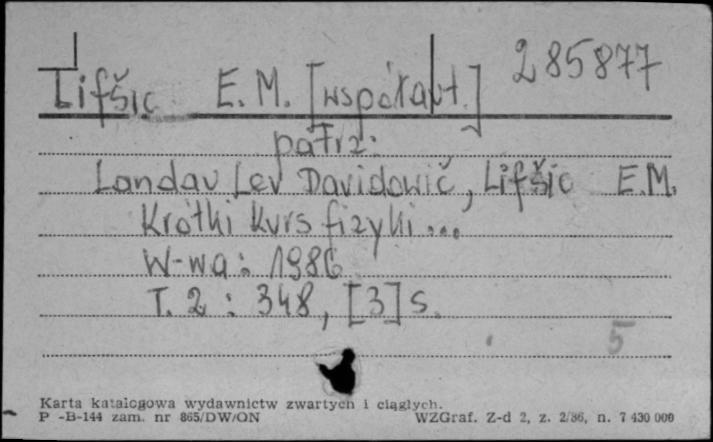 Lifšic E.M. [współaut.] 285877
patrz:
Landau Lev Davidovič, Lifšic E.M.
Krótki kurs fizyki...
W-wa: 1986
T. 2 : 348, [3] s.
5
Karta katalogowa wydawnictw zwartych i ciągłych.
P -B-144 zam. nr 865/DW/ON WZGraf. Z-d 2, z. 2/86, n. 7 430 000